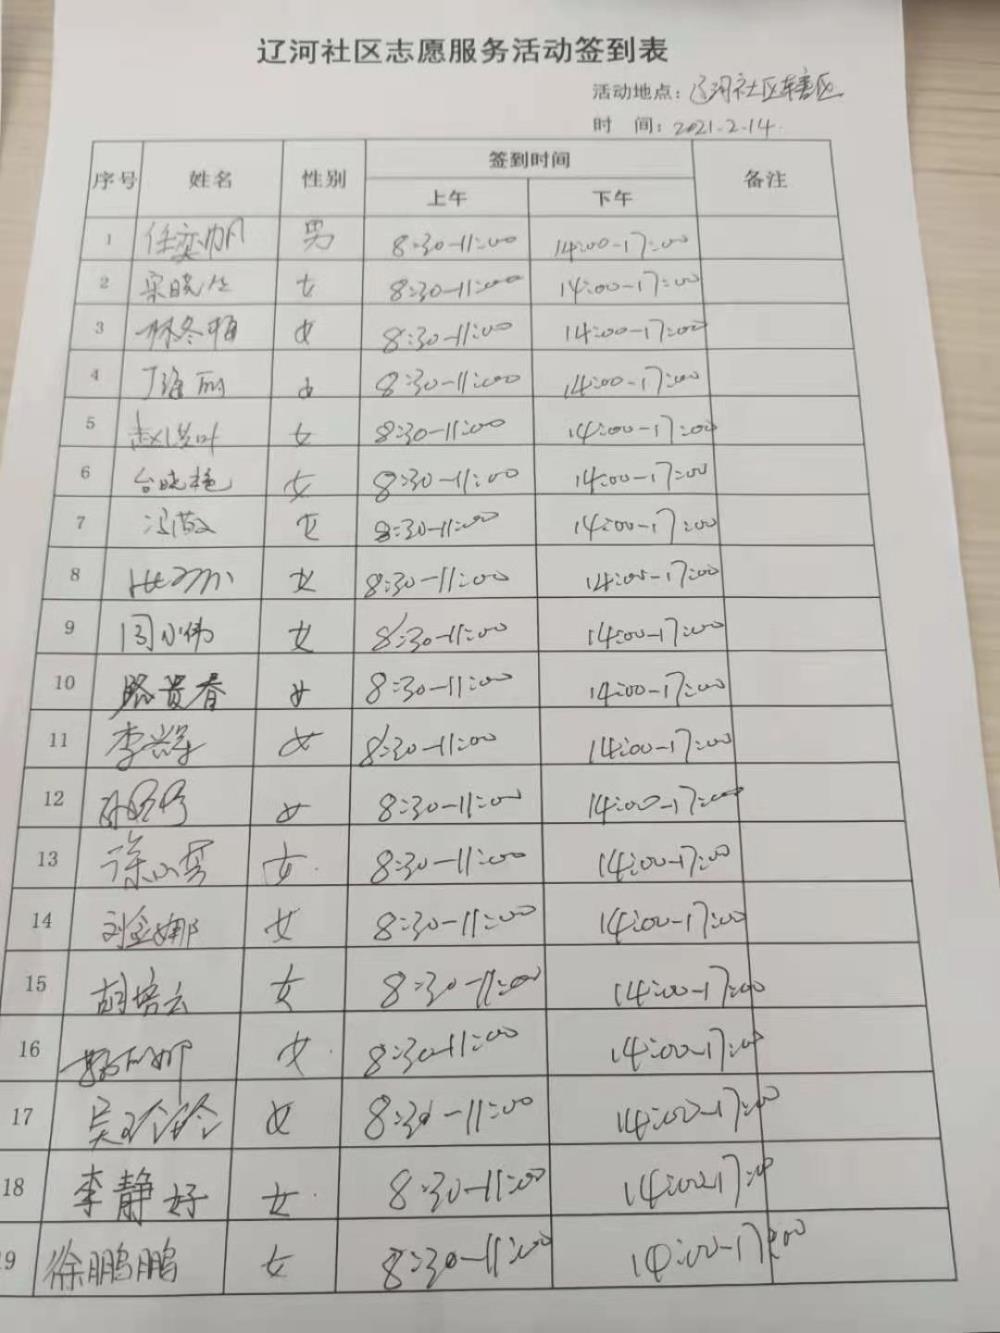 辽河社区志愿服务活动签到表
活动地点：辽河社区辖区
时 间：2021.2.14.
序号 姓名 性别 签到时间 备注
上午 下午
1 任奕帆 男 8:30-11:00 14:00-17:00
2 女 8:30-11:00 14:00-17:00
3 林冬梅 女 8:30-11:00 14:00-17:00
4 丁海丽 女 8:30-11:00 14:00-17:00
5 女 8:30-11:00 14:00-17:00
6 台晓艳 女 8:30-11:00 14:00-17:00
7 女 8:30-11:00 14:00-17:00
8 女 8:30-11:00 14:00-17:00
9 闫小伟 女 8:30-11:00 14:00-17:00
10 路贵春 女 8:30-11:00 14:00-17:00
11 女 8:30-11:00 14:00-17:00
12 女 8:30-11:00 14:00-17:00
13 女 8:30-11:00 14:00-17:00
14 刘金娜 女 8:30-11:00 14:00-17:00
15 胡培云 女 8:30-11:00 14:00-17:00
16 女 8:30-11:00 14:00-17:00
17 吴玲玲 女 8:30-11:00 14:00-17:00
18 李静好 女 8:30-11:00 14:00-17:00
19 徐鹏鹏 女 8:30-11:00 14:00-17:00